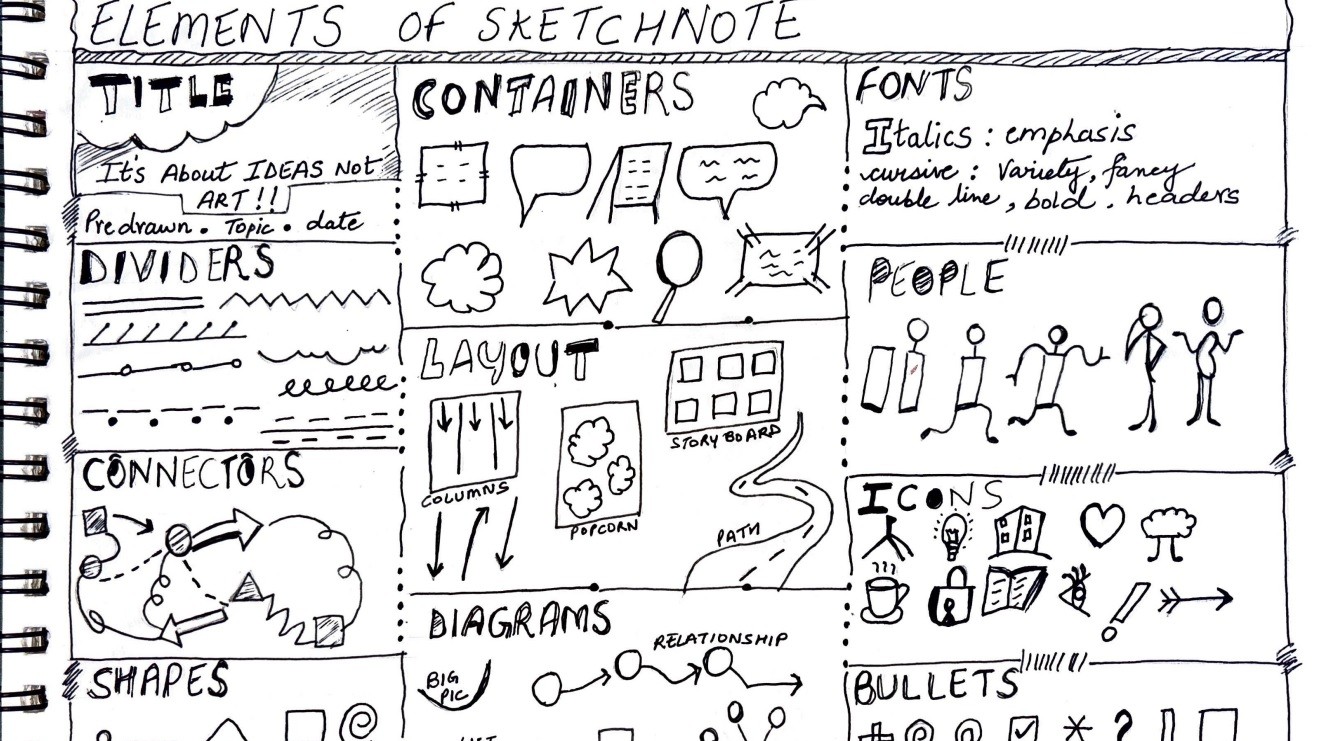 ELEMENTS OF SKETCHNOTE
TITLE
It's About IDEAS Not
ART!!
Predrawn • Topic • date
DIVIDERS
CONNECTORS
SHAPES
CONTAINERS
LAYOUT
COLUMNS
POPCORN
STORY BOARD
PATH
DIAGRAMS
BIG
PIC
RELATIONSHIP
FONTS
Italics : emphasis
cursive : Variety, fancy
double line, bold . headers
PEOPLE
ICONS
BULLETS